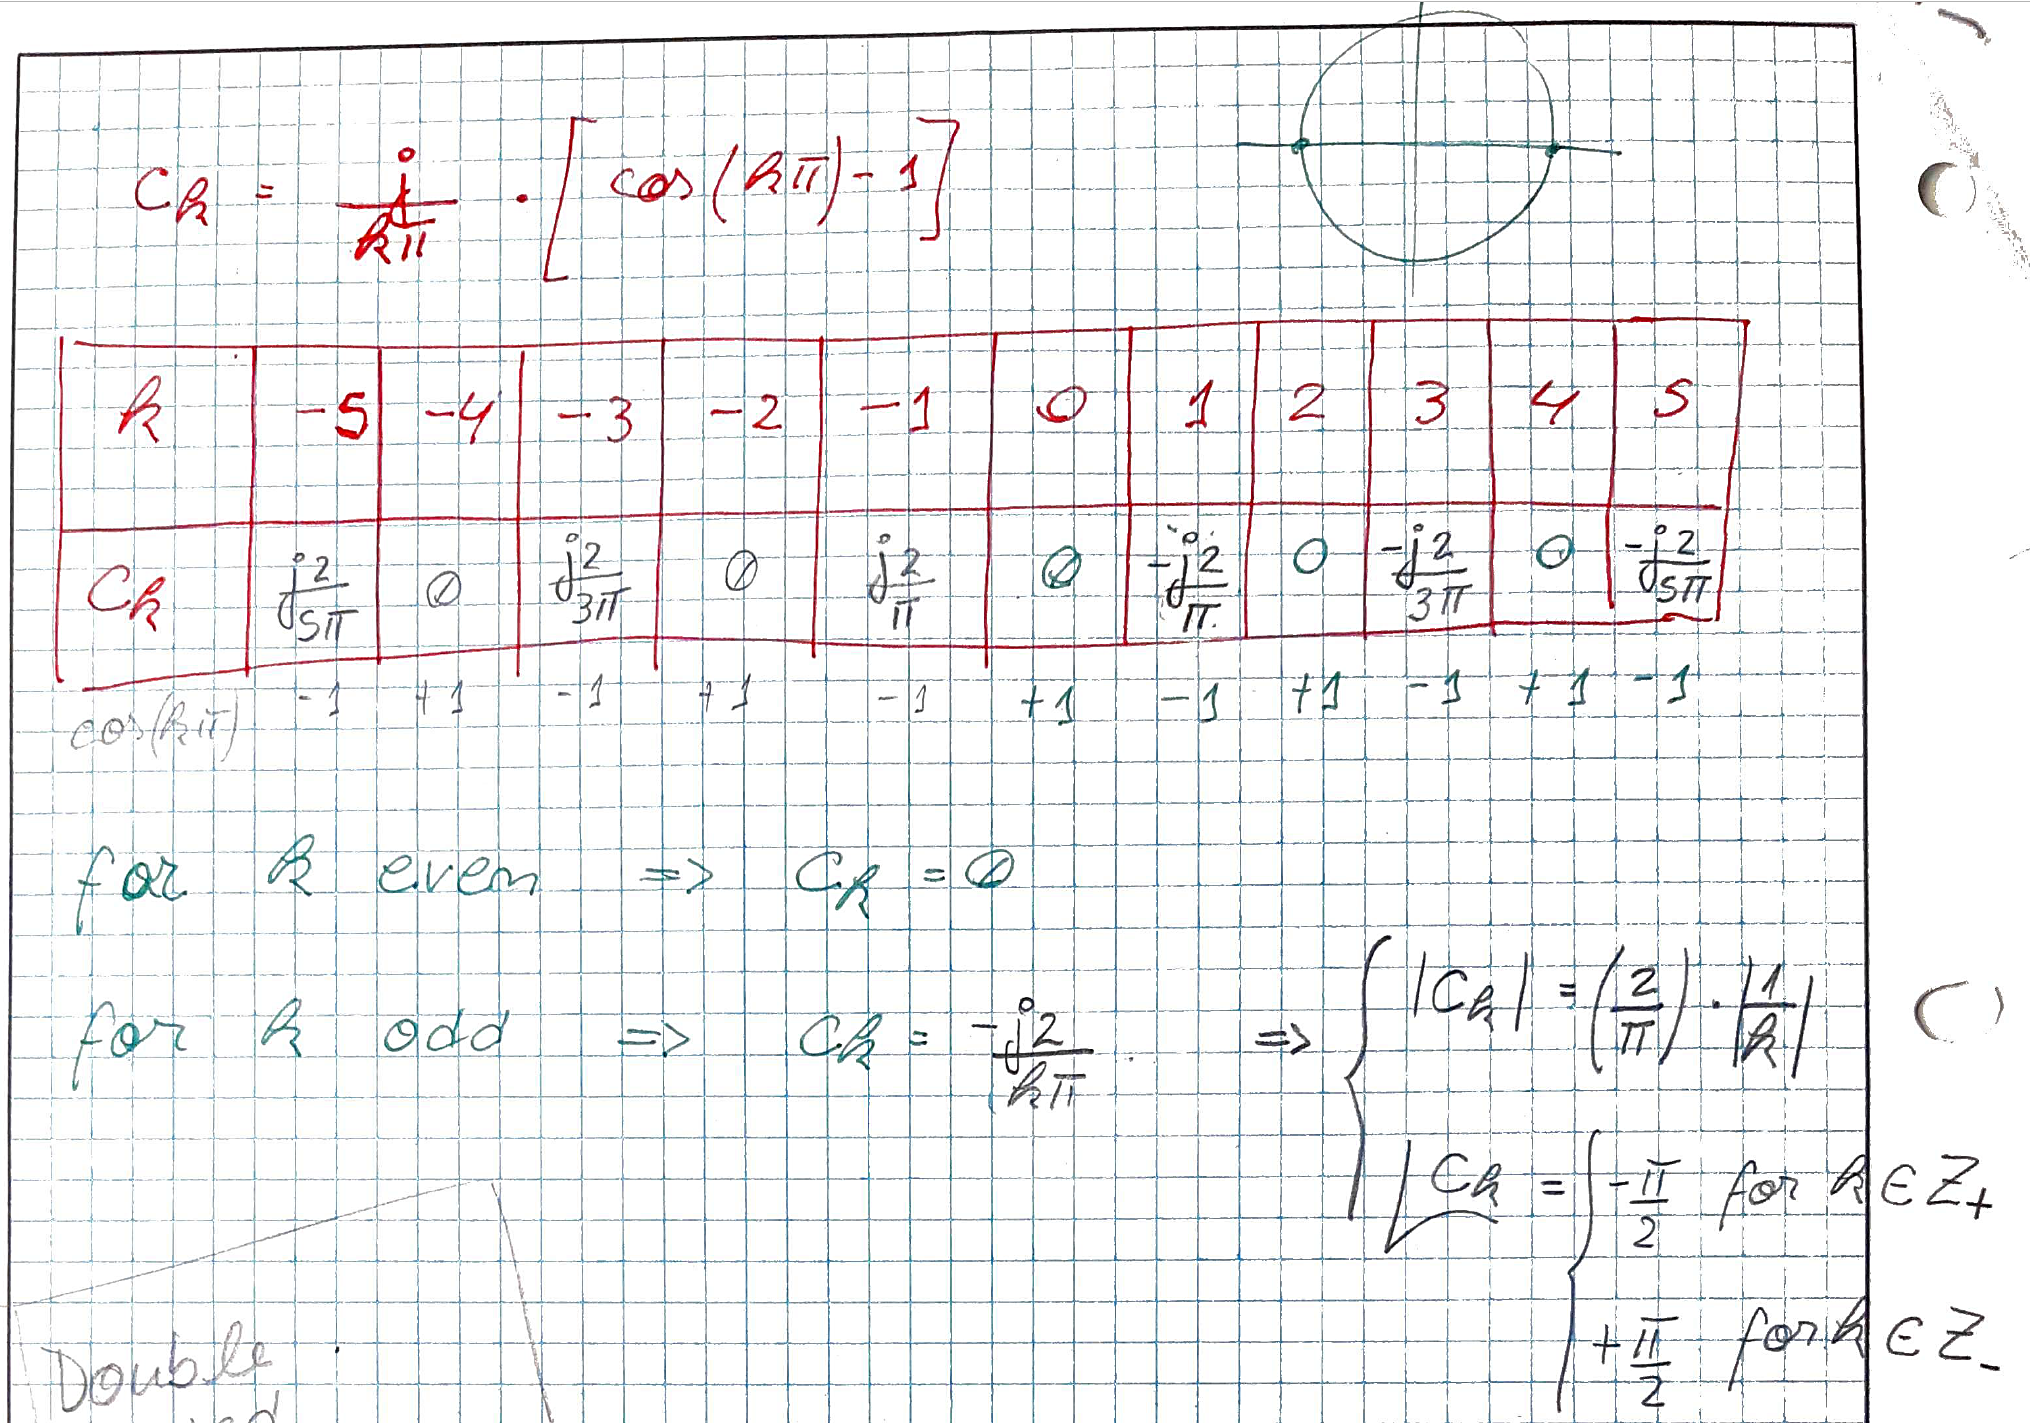 Ck = j/kπ · [cos(kπ) - 1]
k -5 -4 -3 -2 -1 0 1 2 3 4 5
Ck j2/5π 0 j2/3π 0 j2/π 0 -j2/π 0 -j2/3π 0 -j2/5π
cos(kπ) -1 +1 -1 +1 -1 +1 -1 +1 -1 +1 -1
for k even => Ck = 0
for k odd => Ck = -j2/kπ => { |Ck| = (2/π) · |1/k|
∠Ck = { -π/2 for k ∈ Z+
+π/2 for k ∈ Z-
Double